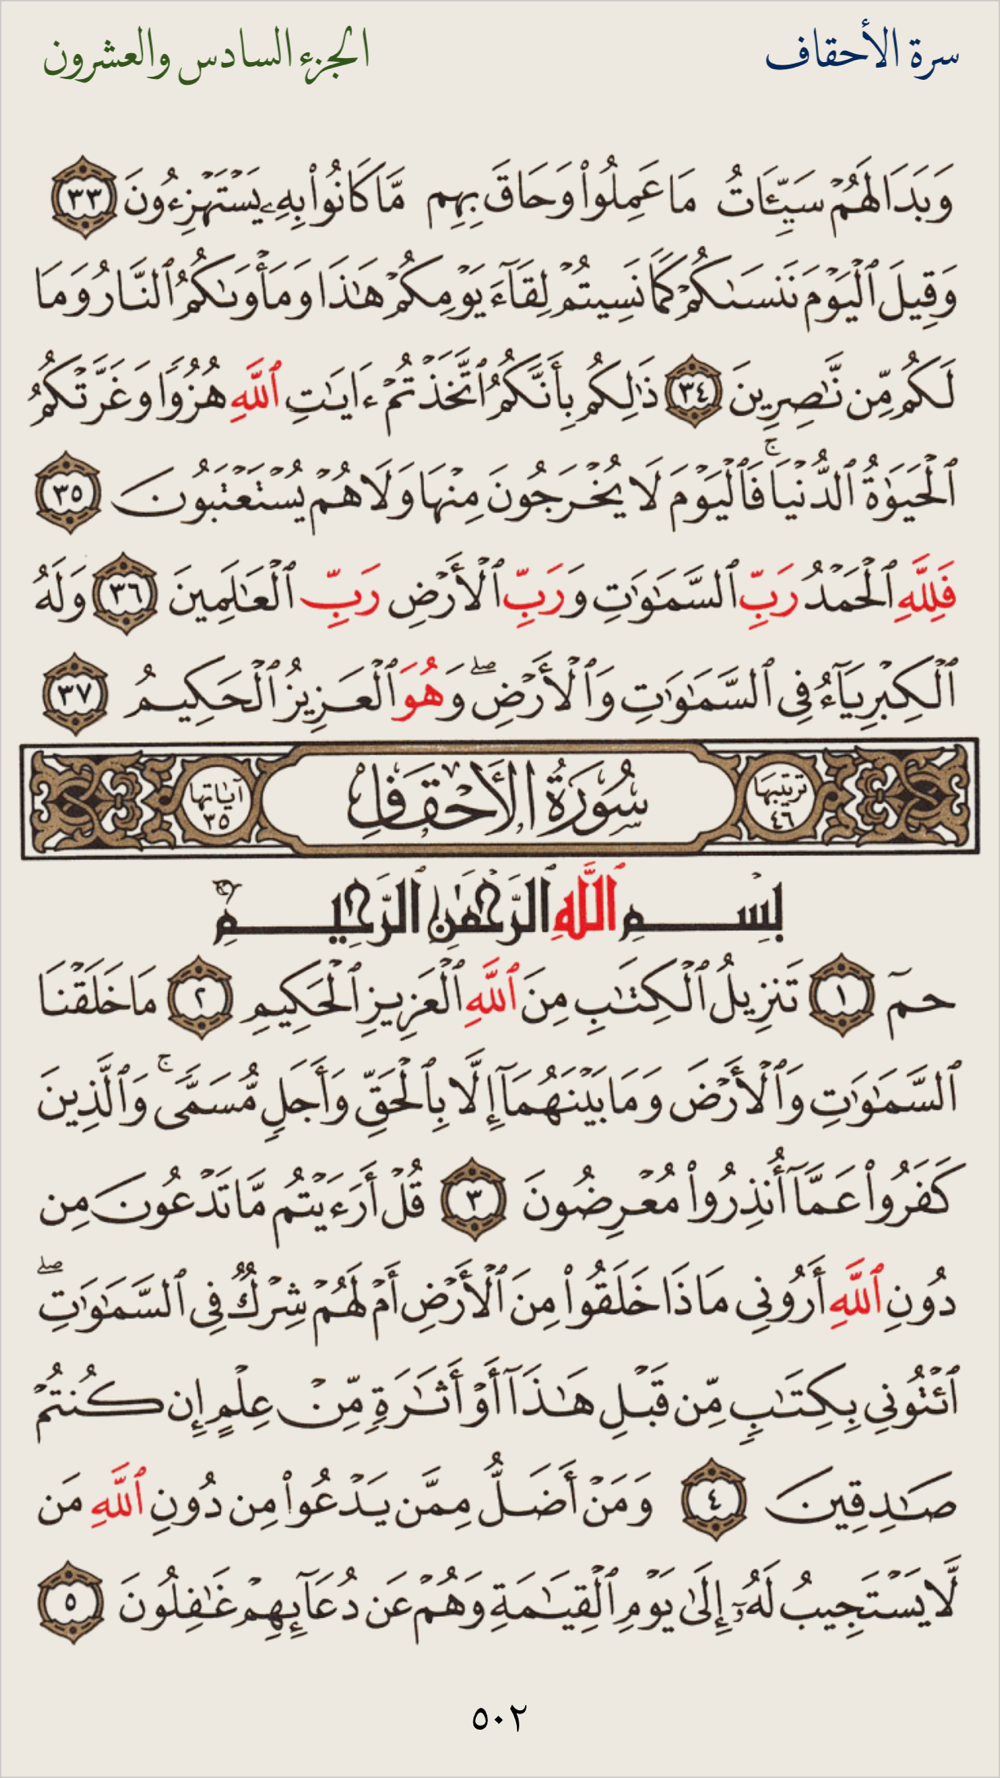 سرة الأحقاف
الجزء السادس والعشرون
وَبَدَا لَهُمْ سَيِّـَٔاتُ مَا عَمِلُوا۟ وَحَاقَ بِهِم مَّا كَانُوا۟ بِهِۦ يَسْتَهْزِءُونَ ٣٣
وَقِيلَ ٱلْيَوْمَ نَنسَىٰكُمْ كَمَا نَسِيتُمْ لِقَآءَ يَوْمِكُمْ هَـٰذَا وَمَأْوَىٰكُمُ ٱلنَّارُ وَمَا
لَكُم مِّن نَّـٰصِرِينَ ٣٤ ذَٰلِكُم بِأَنَّكُمُ ٱتَّخَذْتُمْ ءَايَـٰتِ ٱللَّهِ هُزُوًا وَغَرَّتْكُمُ
ٱلْحَيَوٰةُ ٱلدُّنْيَا ۚ فَٱلْيَوْمَ لَا يُخْرَجُونَ مِنْهَا وَلَا هُمْ يُسْتَعْتَبُونَ ٣٥
فَلِلَّهِ ٱلْحَمْدُ رَبِّ ٱلسَّمَـٰوَٰتِ وَرَبِّ ٱلْأَرْضِ رَبِّ ٱلْعَـٰلَمِينَ ٣٦ وَلَهُ
ٱلْكِبْرِيَآءُ فِى ٱلسَّمَـٰوَٰتِ وَٱلْأَرْضِ ۖ وَهُوَ ٱلْعَزِيزُ ٱلْحَكِيمُ ٣٧
ترتيبها ٤٦ سُورَةُ الأَحْقَافِ آياتها ٣٥
بِسْمِ ٱللَّهِ ٱلرَّحْمَـٰنِ ٱلرَّحِيمِ
حمٓ ١ تَنزِيلُ ٱلْكِتَـٰبِ مِنَ ٱللَّهِ ٱلْعَزِيزِ ٱلْحَكِيمِ ٢ مَا خَلَقْنَا
ٱلسَّمَـٰوَٰتِ وَٱلْأَرْضَ وَمَا بَيْنَهُمَآ إِلَّا بِٱلْحَقِّ وَأَجَلٍ مُّسَمًّى ۚ وَٱلَّذِينَ
كَفَرُوا۟ عَمَّآ أُنذِرُوا۟ مُعْرِضُونَ ٣ قُلْ أَرَءَيْتُم مَّا تَدْعُونَ مِن
دُونِ ٱللَّهِ أَرُونِى مَاذَا خَلَقُوا۟ مِنَ ٱلْأَرْضِ أَمْ لَهُمْ شِرْكٌ فِى ٱلسَّمَـٰوَٰتِ ۖ
ٱئْتُونِى بِكِتَـٰبٍ مِّن قَبْلِ هَـٰذَآ أَوْ أَثَـٰرَةٍ مِّنْ عِلْمٍ إِن كُنتُمْ
صَـٰدِقِينَ ٤ وَمَنْ أَضَلُّ مِمَّن يَدْعُوا۟ مِن دُونِ ٱللَّهِ مَن
لَّا يَسْتَجِيبُ لَهُۥٓ إِلَىٰ يَوْمِ ٱلْقِيَـٰمَةِ وَهُمْ عَن دُعَآئِهِمْ غَـٰفِلُونَ ٥
٥٠٢